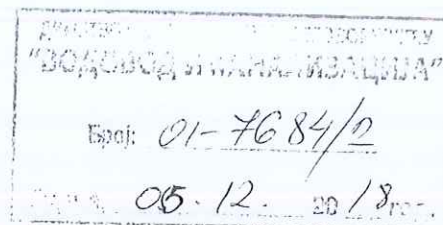 "ВОДОВОД И КАНАЛИЗАЦИЈА"
Број: 01-7684/2
05.12. 20 18 год.